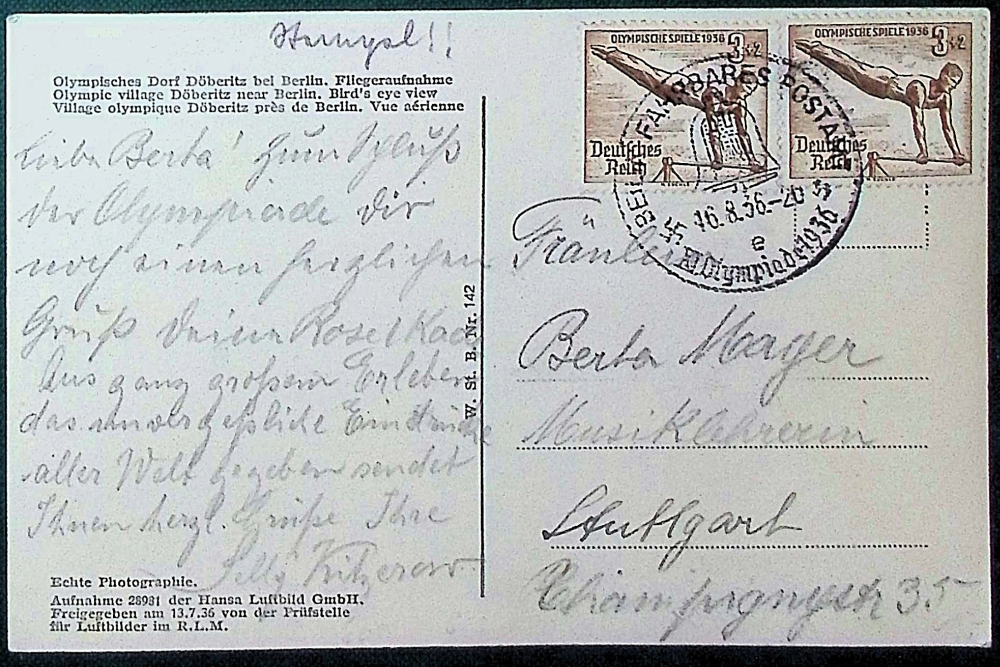 Stempel!!
Olympisches Dorf Döberitz bei Berlin. Fliegeraufnahme
Olympic village Döberitz near Berlin. Bird's eye view
Village olympique Döberitz près de Berlin. Vue aérienne
Liebe Berta! Zum Schluß
der Olympiade Dir
noch einen herzlichen
Gruß Deine Rosel
Aus ganz großem Erleben
das unvergeßliche Eindrücke
aller Welt gegeben sendet
Ihnen herzl. Grüße Ihre
Kitzerow
Echte Photographie.
Aufnahme 28981 der Hansa Luftbild GmbH.
Freigegeben am 13.7.36 von der Prüfstelle
für Luftbilder im R.L.M.
W. St. B. Nr. 142
OLYMPISCHE SPIELE 1936 3+2
Deutsches
Reich
OLYMPISCHE SPIELE 1936 3+2
Deutsches
Reich
FAHRBARES POSTAMT
16.8.36.-20
e
XI Olympiade 1936
Fräulein
Berta Mayer
Musiklehrerin
Stuttgart
Champignystr 35